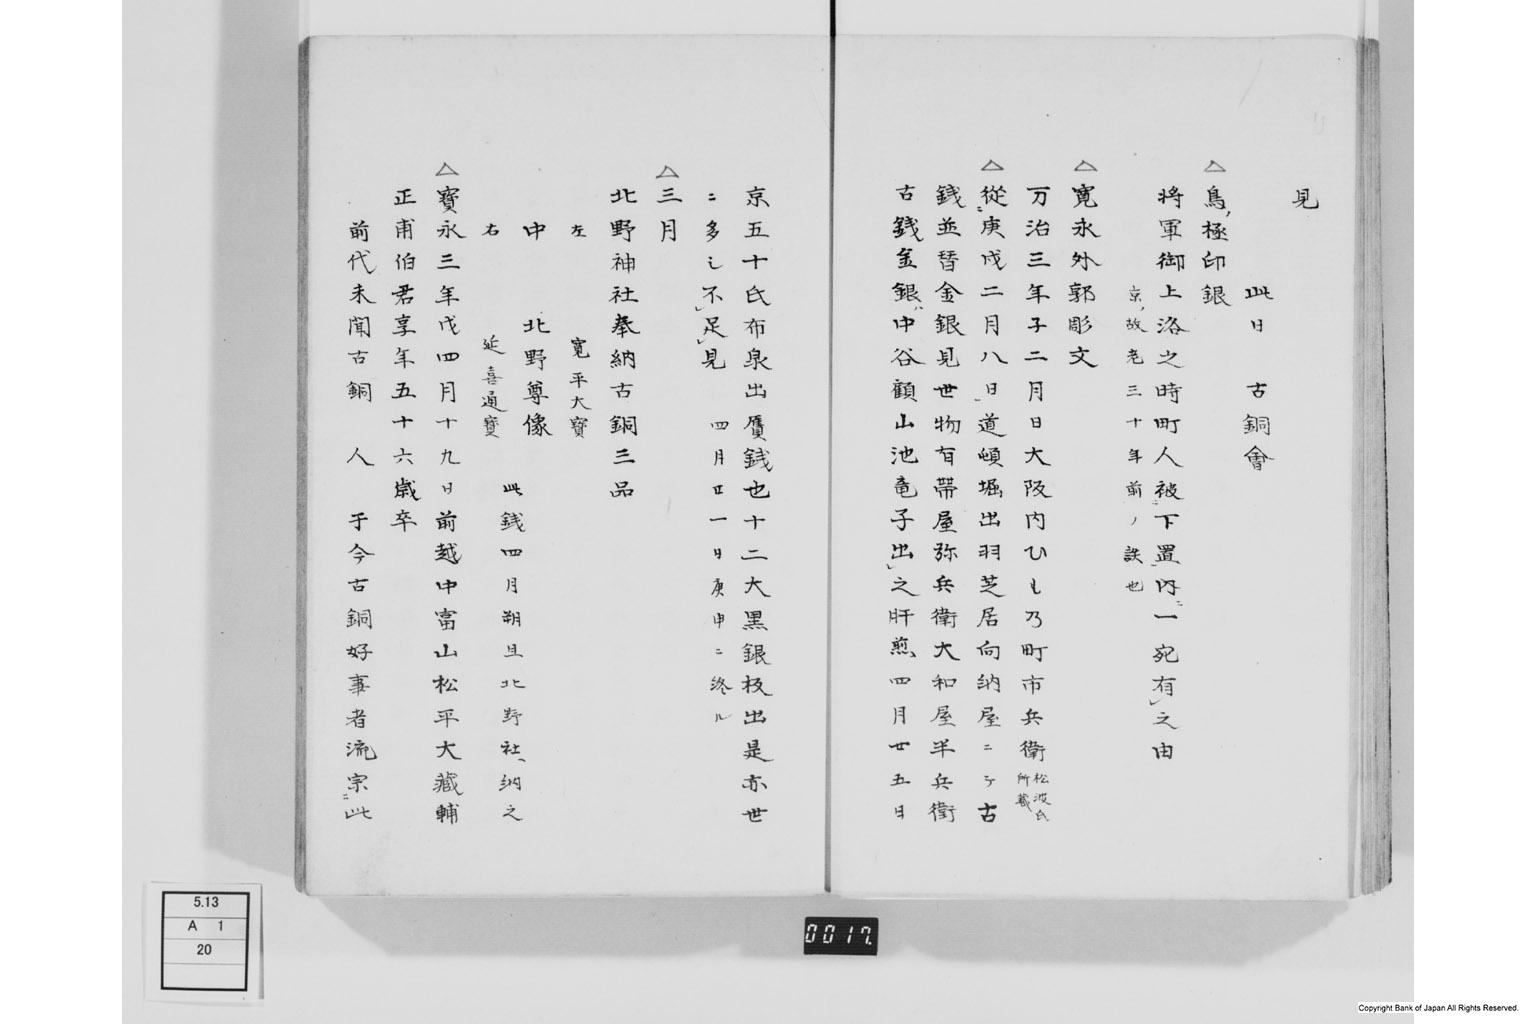 見
此日 古銅會
△鳥極印銀
將軍御上洛之時町人被下置内一宛有之由
京故老三十年前ノ談也
△寛永外郭彫文
万治三年子二月日大阪内ひも乃町市兵衛 松波氏所蔵
△從庚戌二月八日道頓堀出羽芝居向納屋ニテ古
錢並替金銀見世物有帯屋弥兵衛大和屋半兵衛
古錢金銀中谷顧山池竜子出之肝煎四月廿五日
京五十氏布泉出贋錢也十二大黒銀板出是亦世
ニ多シ不足見 四月廿一日庚申ニ終ル
△三月
北野神社奉納古銅三品
左 寛平大寶
中 北野尊像
右 延喜通寶 此錢四月朔旦北野社納之
△寶永三年戊四月十九日前越中富山松平大藏輔
正甫伯君享年五十六歳卒
前代未聞古銅 人 于今古銅好事者流宗此
0017.
5.13
A 1
20
Copyright Bank of Japan All Rights Reserved.